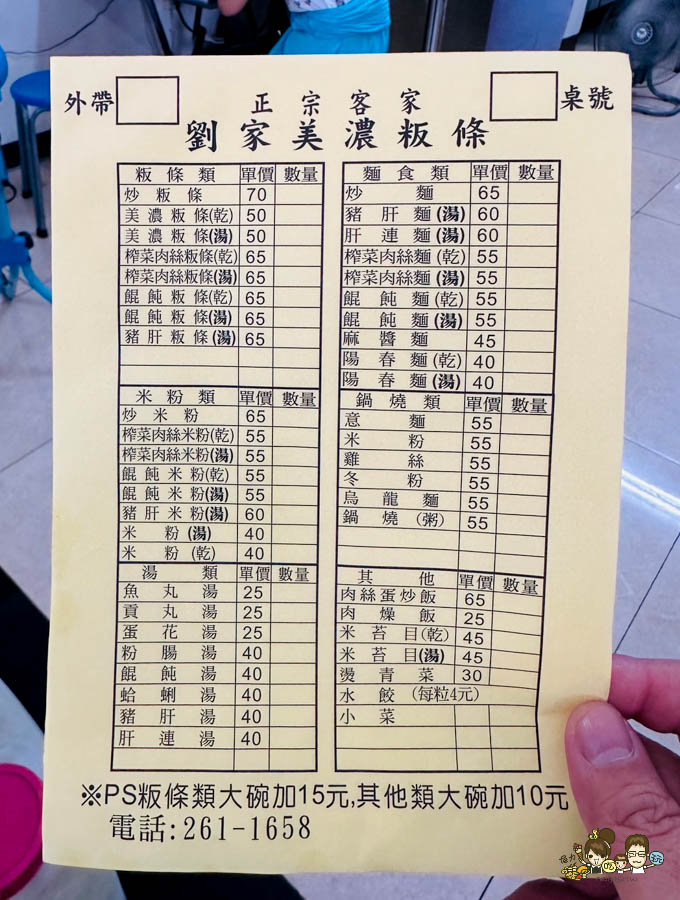 外帶
桌號
正宗客家
劉家美濃粄條
粄條類 單價 數量
炒粄條 70
美濃粄條(乾) 50
美濃粄條(湯) 50
榨菜肉絲粄條(乾) 65
榨菜肉絲粄條(湯) 65
餛飩粄條(乾) 65
餛飩粄條(湯) 65
豬肝粄條(湯) 65
米粉類 單價 數量
炒米粉 65
榨菜肉絲米粉(乾) 55
榨菜肉絲米粉(湯) 55
餛飩米粉(乾) 55
餛飩米粉(湯) 55
豬肝米粉(湯) 60
米粉(湯) 40
米粉(乾) 40
湯類 單價 數量
魚丸湯 25
貢丸湯 25
蛋花湯 25
粉腸湯 40
餛飩湯 40
蛤蜊湯 40
豬肝湯 40
肝連湯 40
麵食類 單價 數量
炒麵 65
豬肝麵(湯) 60
肝連麵(湯) 60
榨菜肉絲麵(乾) 55
榨菜肉絲麵(湯) 55
餛飩麵(乾) 55
餛飩麵(湯) 55
麻醬麵 45
陽春麵(乾) 40
陽春麵(湯) 40
鍋燒類 單價 數量
意麵 55
米粉 55
雞絲 55
冬粉 55
烏龍麵 55
鍋燒(粥) 55
其他 單價 數量
肉絲蛋炒飯 65
肉燥飯 25
米苔目(乾) 45
米苔目(湯) 45
燙青菜 30
水餃(每粒4元)
小菜
※PS粄條類大碗加15元,其他類大碗加10元
電話:261-1658